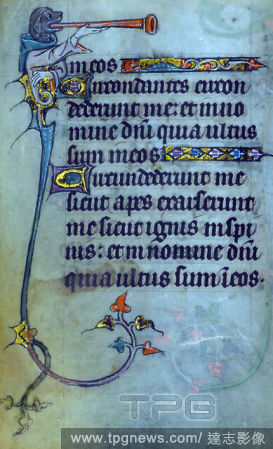 in eos
Circondantes circon
dederunt me: et in no
mine dn̄i quia ultus
sum in eos
Circumdederunt me
sicut apes exarserunt
me sicut ignis in spi
nis: et in nomine dn̄i
quia ultus sum ī eos.
TPG
www.tpgnews.com/ 達志影像